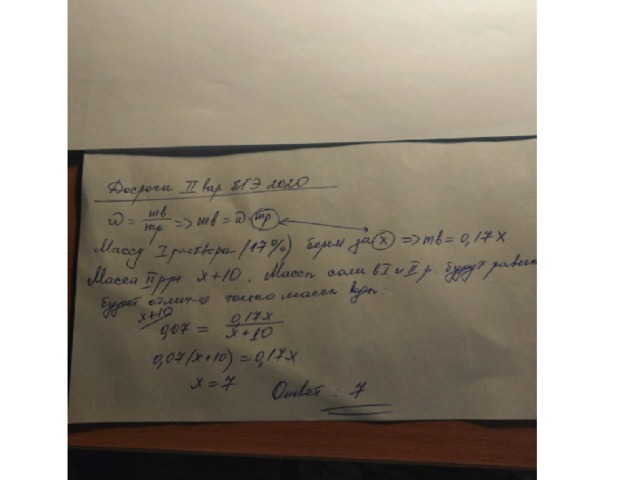 Досрочн II вар ЕГЭ 2020
ω = mв/mр => mв = ω · mр
Массу I раствора (17%) берем за x => mв = 0,17x
Масса II р-ра x+10. Массы соли в I и II р. будут равны
будет отлич-ся только масса воды:
x+10
0,07 = 0,17x / x+10
0,07(x+10) = 0,17x
x = 7
Ответ: 7